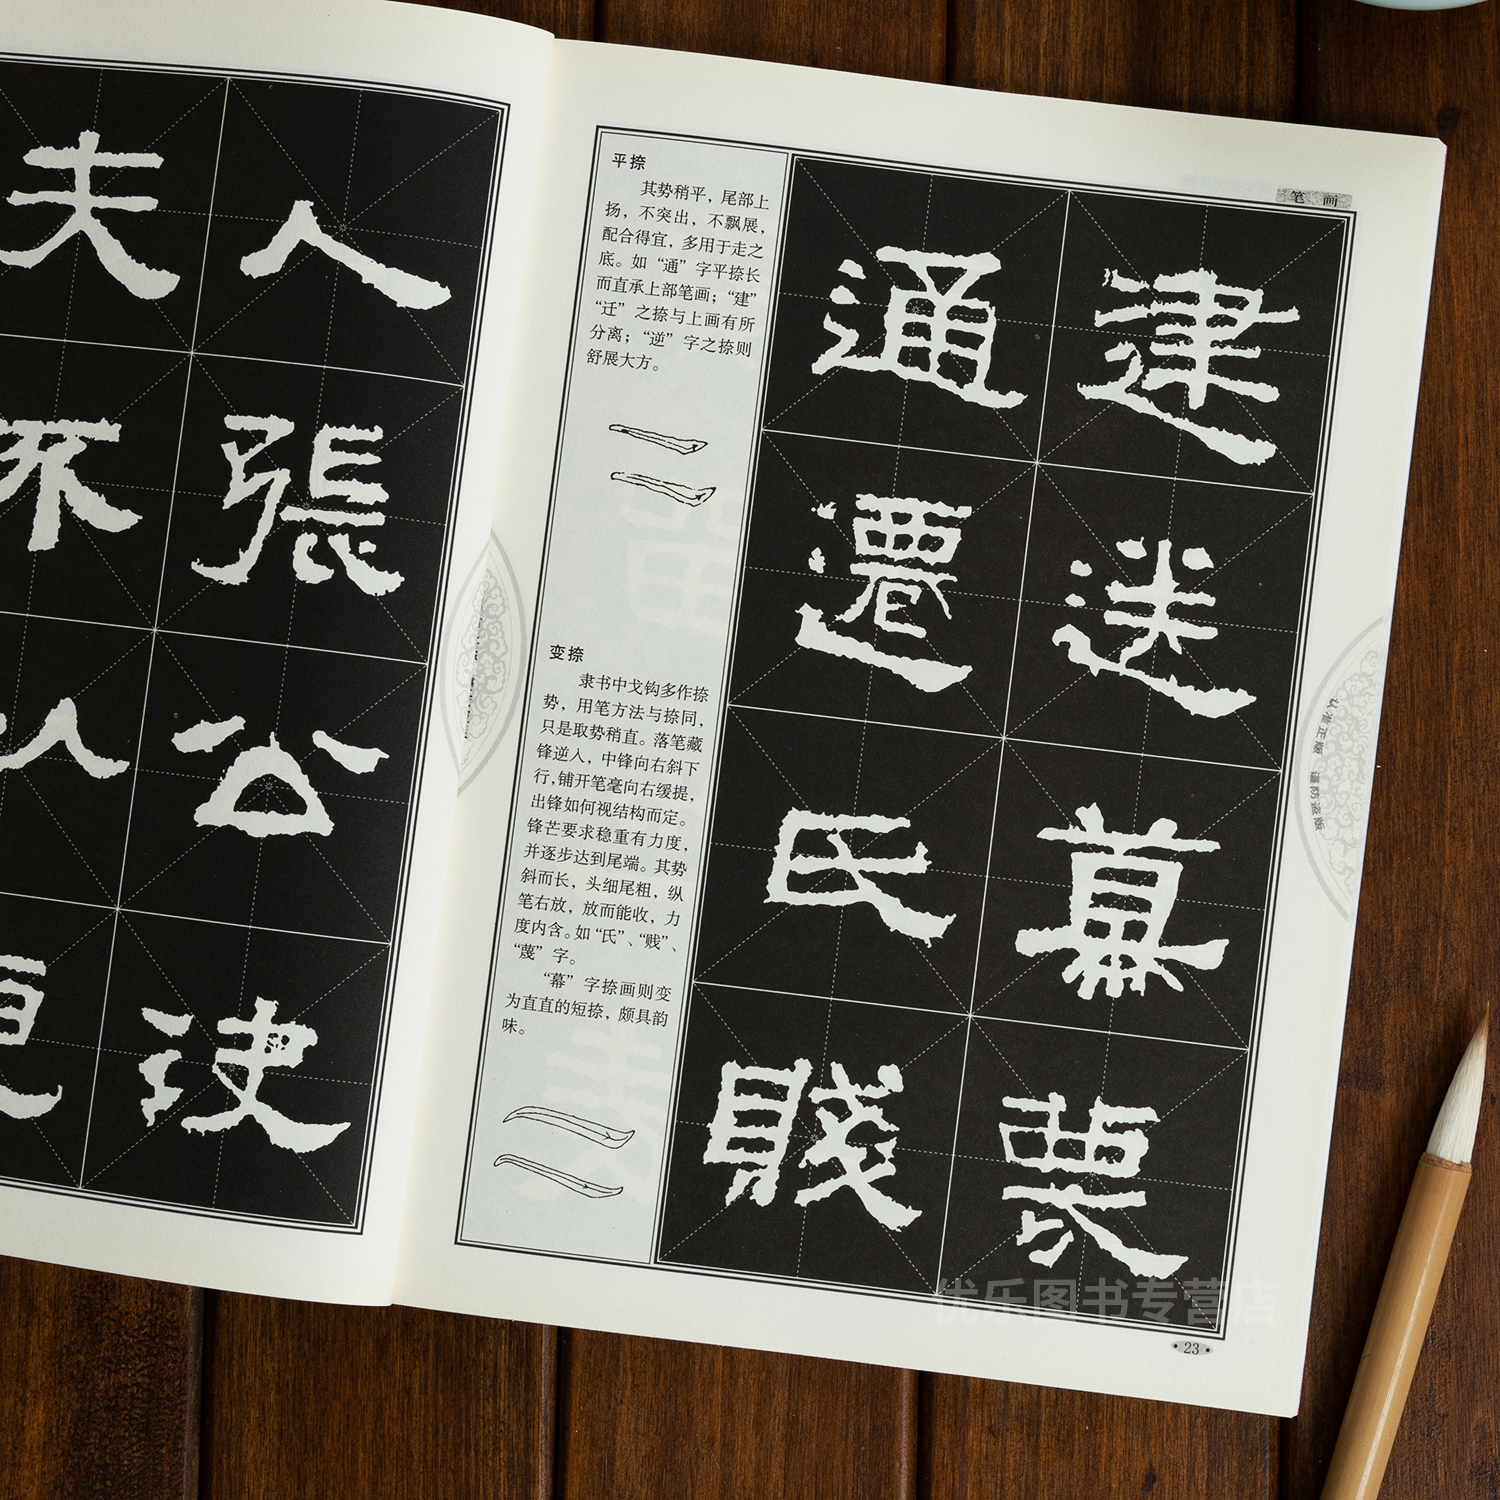 夫
人
不
張
人
公
笔 画
平捺
其势稍平，尾部上
扬，不突出，不飘展，
配合得宜，多用于走之
底。如“通”字平捺长
而直承上部笔画；“建”
“迁”之捺与上画有所
分离；“逆”字之捺则
舒展大方。
变捺
隶书中戈钩多作捺
势，用笔方法与捺同，
只是取势稍直。落笔藏
锋逆入，中锋向右斜下
行，铺开笔毫向右缓提，
出锋如何视结构而定。
锋芒要求稳重有力度，
并逐步达到尾端。其势
斜而长，头细尾粗，纵
笔右放，放而能收，力
度内含。如“氏”、“贱”、
“蔑”字。
“幕”字捺画则变
为直直的短捺，颇具韵
味。
通
建
遷
氏
幕
賤
认准正版 谨防盗版
优乐图书专营店
23